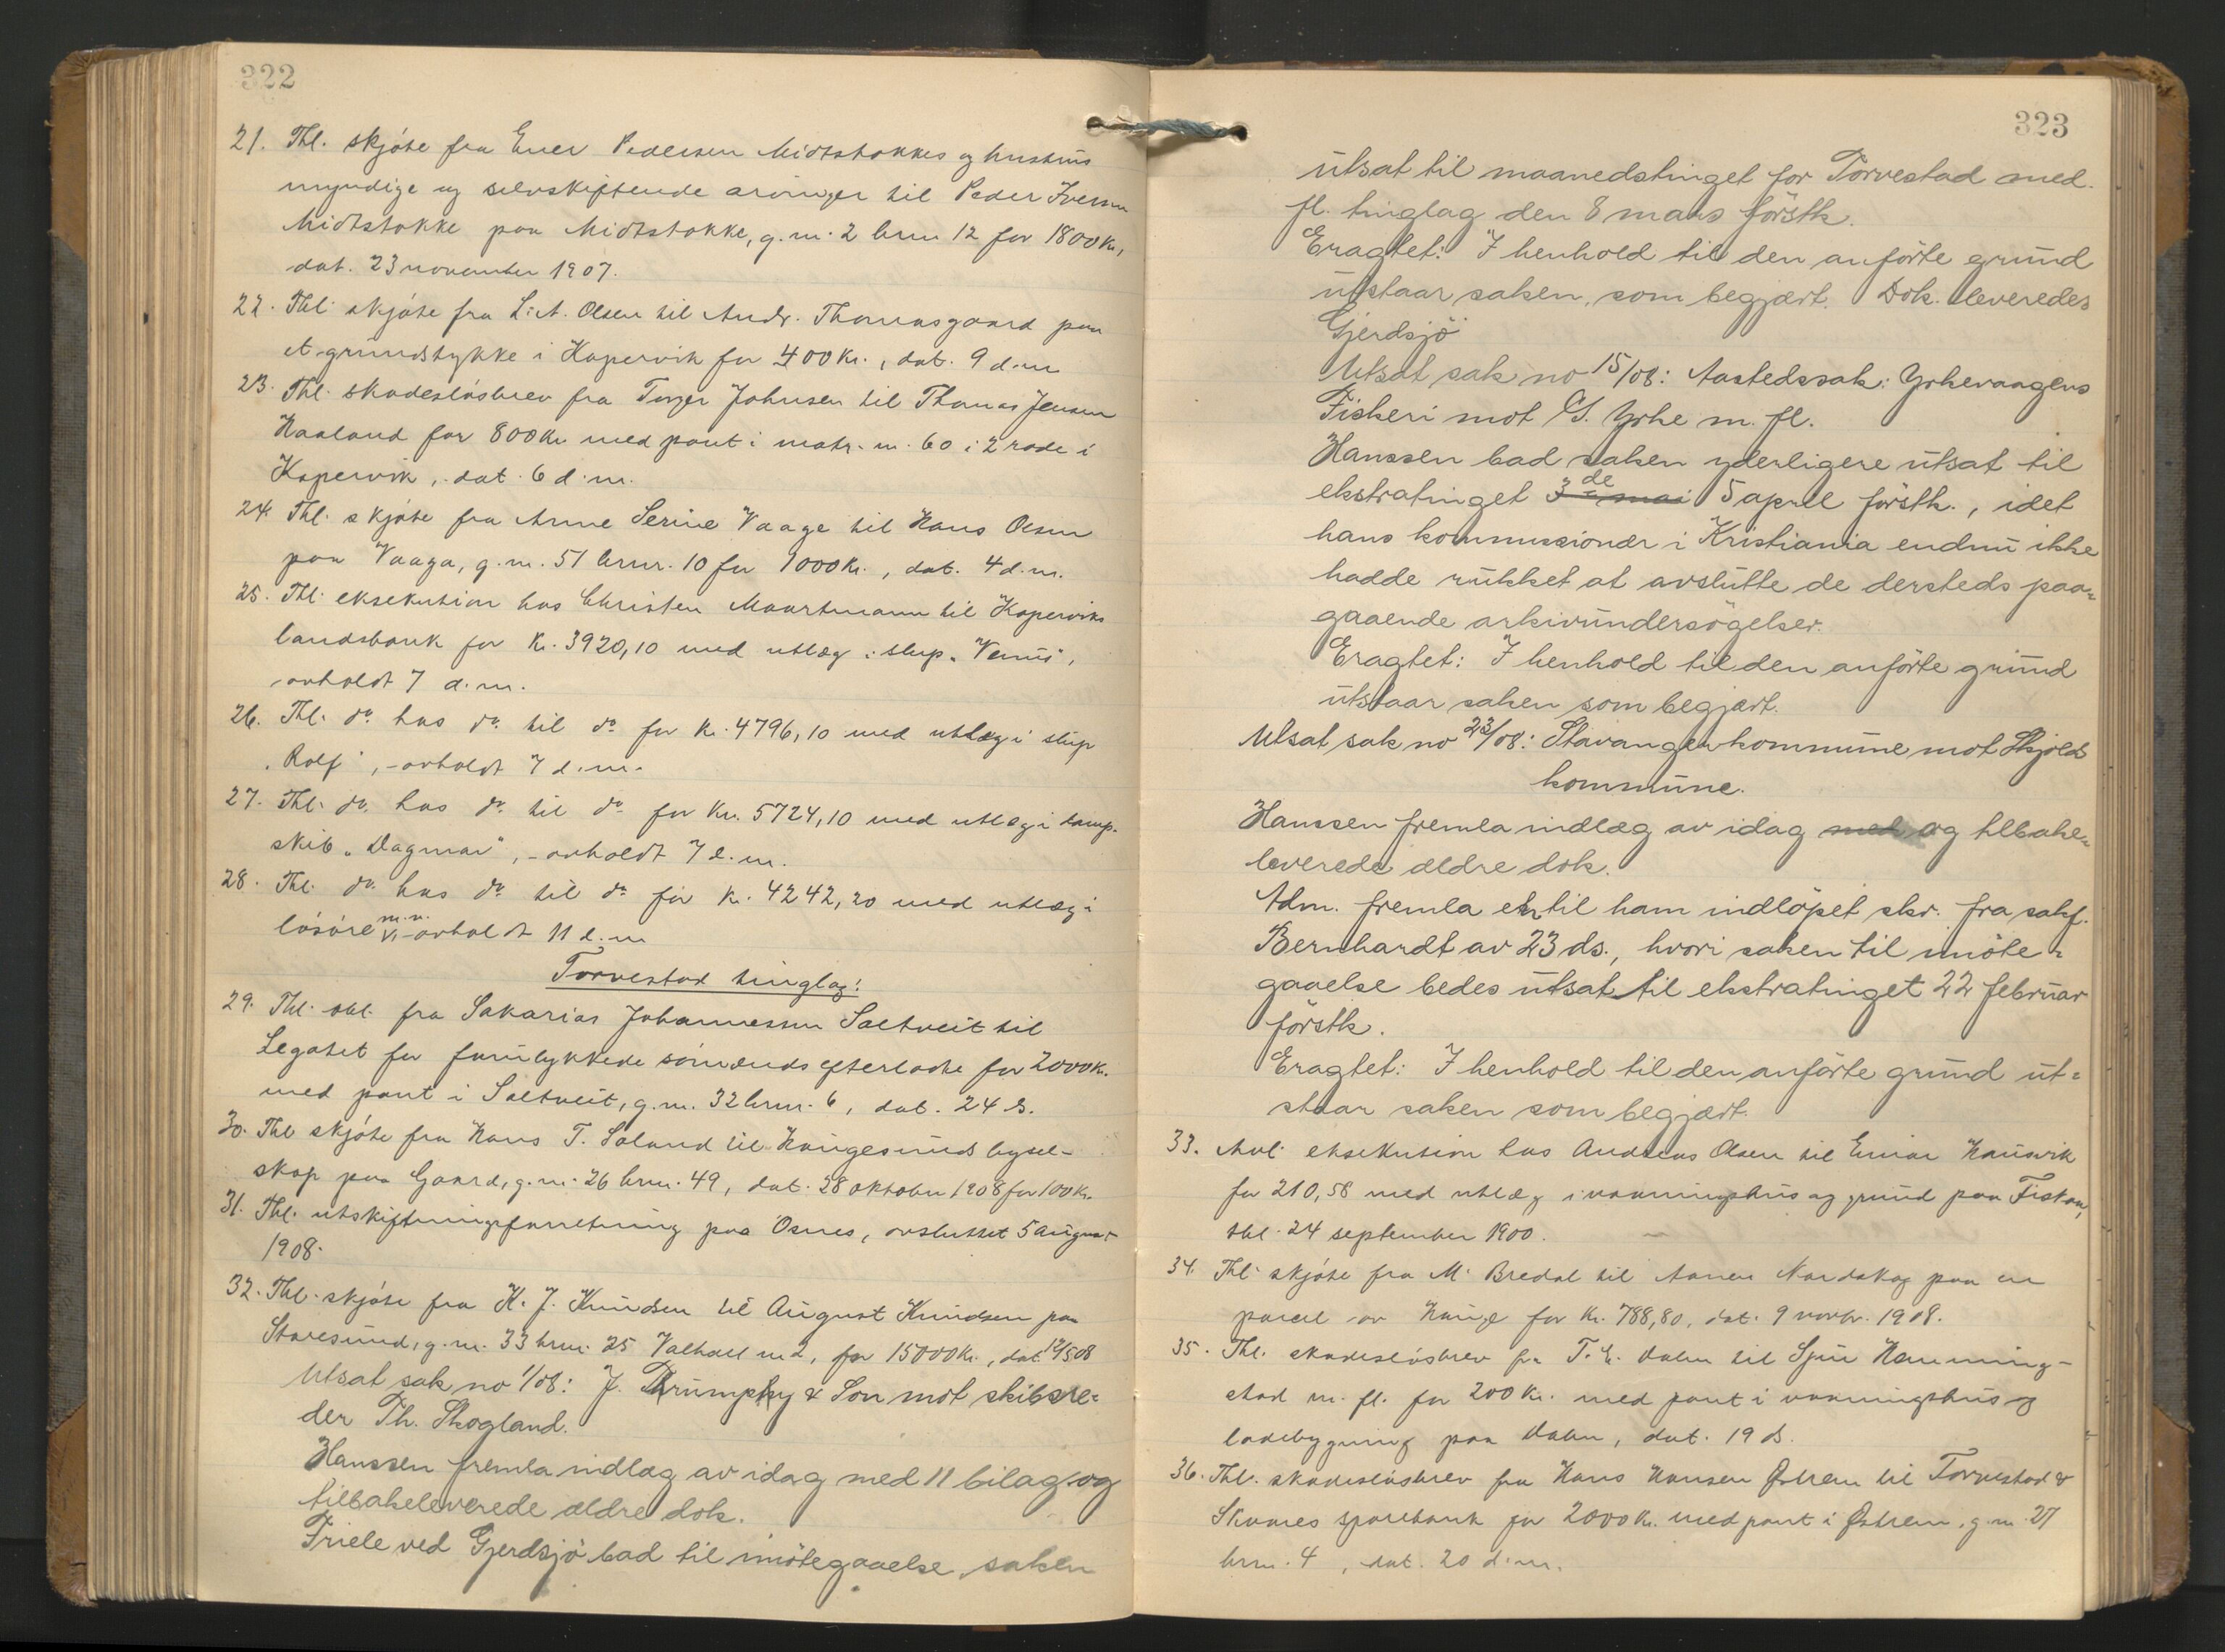 322
21. Thl. skjøte fra Iver Pedersen Midtstokkes og hustrus
myndige og selvskiftende arvinger til Peder Iversen
Midtstokke paa Midtstokke, g.nr. 2 brnr 12 for 1800 Kr,
dat. 23 november 1907.
22. Thl. skjøte fra L. A. Olsen til Andr. Thomasgaard paa
et grundstykke i Kopervik for 400 Kr., dat. 9 d.m
23. Thl. skadesløsbrev fra Torger Johnsen til Thomas Jensen
Haaland for 800 Kr med pant i matr. nr. 60 i 2 rode i
Kopervik, dat. 6 d.m.
24. Thl. skjøte fra Anne Serine Vaage til Hans Olsen
paa Vaaga, g.nr. 51 brnr. 10 for 1000 Kr., dat. 4 d.m.
25. Thl. eksekution hos Christen Maartmann til Koperviks
landsbank for Kr. 3920,10 med utlæg i slup "Venus",
avholdt 7 d.m.
26. Thl. do hos do til do for Kr. 4796,10 med utlæg i slup
"Rolf", - avholdt 7 d.m.
27. Thl. do hos do til do for Kr. 5724,10 med utlæg i damp-
skib "Dagmar", - avholdt 7 d.m.
28. Thl. do hos do til do for Kr. 4242,20 med utlæg i
løsøre m.v. - avholdt 11 d.m
Torvestad tinglag:
29. Thl. obl. fra Sakarias Johannessen Saltveit til
Legatet for forulykkede sømænds efterladte for 2000 Kr.
med pant i Saltveit, g.nr. 32 brnr. 6, dat. 24 ds.
30. Thl skjøte fra Hans T. Saland til Haugesunds bysel-
skap paa Gaard, g.nr. 26 brnr. 49, dat. 28 oktober 1908 for 100 Kr.
31. Thl. utskiftningsforretning paa Osnes, avsluttet 5 august
1908.
32. Thl. skjøte fra K. J. Knudsen til August Knudsen paa
Storesund, g.nr. 33 brnr. 25 Valhall nr 2, for 15000 Kr., dat. 12/5 08
Utsat sak no 1/08: J. Trumpy & Son mot skibsre=
der Th. Skogland.
Hanssen fremla indlæg av idag med 11 bilag og
tilbakeleverede ældre dok.
Friele ved Gjerdsjö bad til imötegaaelse saken
323
utsat til maanedstinget for Torvestad med.
fl. tinglag den 8 mars förstk.
Eragtet: I henhold til den anförte grund
utstaar saken, som begjært. Dok. leveredes
Gjerdsjö
Utsat sak no 15/08: Aastedssak: Yrkevaagens
Fiskeri mot S. Yrke m. fl.
Hanssen bad saken yderligere utsat til
ekstratinget 3de mai 5 april förstk., idet
hans kommissionær i Kristiania endnu ikke
hadde rukket at avslutte de dersteds paa=
gaaende arkivundersögelser.
Eragtet: I henhold til den anförte grund
utstaar saken som begjært.
Utsat sak no 23/08: Stavanger kommune mot Skjold
kommune.
Hanssen fremla indlæg av idag med og tilbake=
leverede ældre dok.
Adm. fremla et til ham indlöpet skr. fra sakf.
Bernhardt av 23 ds., hvori saken til imöte=
gaaelse bedes utsat til ekstratinget 22 februar
förstk.
Eragtet: I henhold til den anförte grund ut=
staar saken som begjært.
33. Avl. eksekution hos Andreas Olsen til Einar Hausvik
for 210,58 med utlæg i vaaningshus og grund paa Fiskaa,
thl. 24 september 1900.
34. Thl. skjøte fra M. Bredal til Aanen Nordskog paa en
parcel av Hauge for Kr. 788,80, dat. 9 novbr. 1908.
35. Thl. skadesløsbrev fra T. E. Dalen til Hemming-
stad m. fl. for 200 Kr. med pant i vaaningshus og
ladebygning paa Dalen, dat. 19 ds.
36. Thl. skadesløsbrev fra Hans Hansen Østrem til Torvestad &
Skaares sparebank for 2000 Kr. med pant i Østrem, g.nr. 27
brnr. 4, dat. 20 d.m.